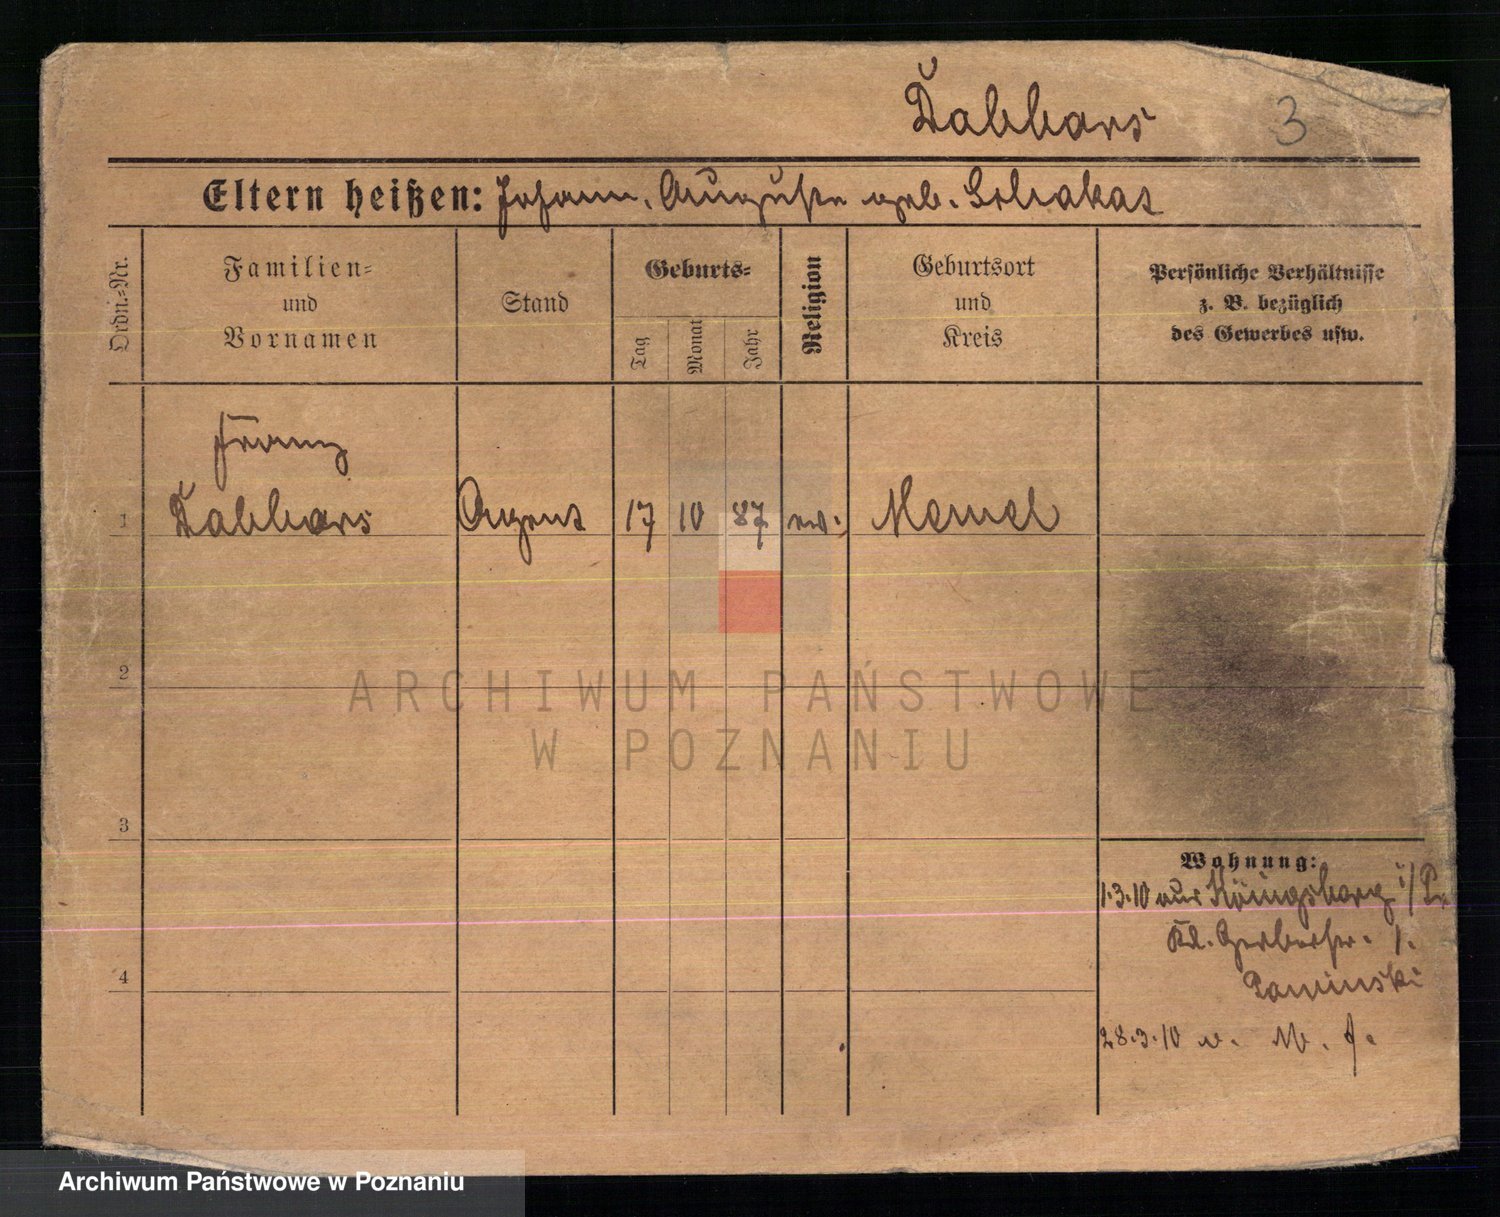 3
Eltern heißen: Johann, Auguste geb.
Ordn.-Nr.
Familien-
und
Vornamen
Stand
Geburts-
Tag
Monat
Jahr
Religion
Geburtsort
und
Kreis
Persönliche Verhältnisse
z. B. bezüglich
des Gewerbes usw.
Franz
1 Agent 17 10 87 ev. Memel
2
3
4
Wohnung:
1.3.10 aus Königsberg i/Pr
Kl. Gerberstr. 1.
28.3.10 n.
ARCHIWUM PAŃSTWOWE
W POZNANIU
Archiwum Państwowe w Poznaniu